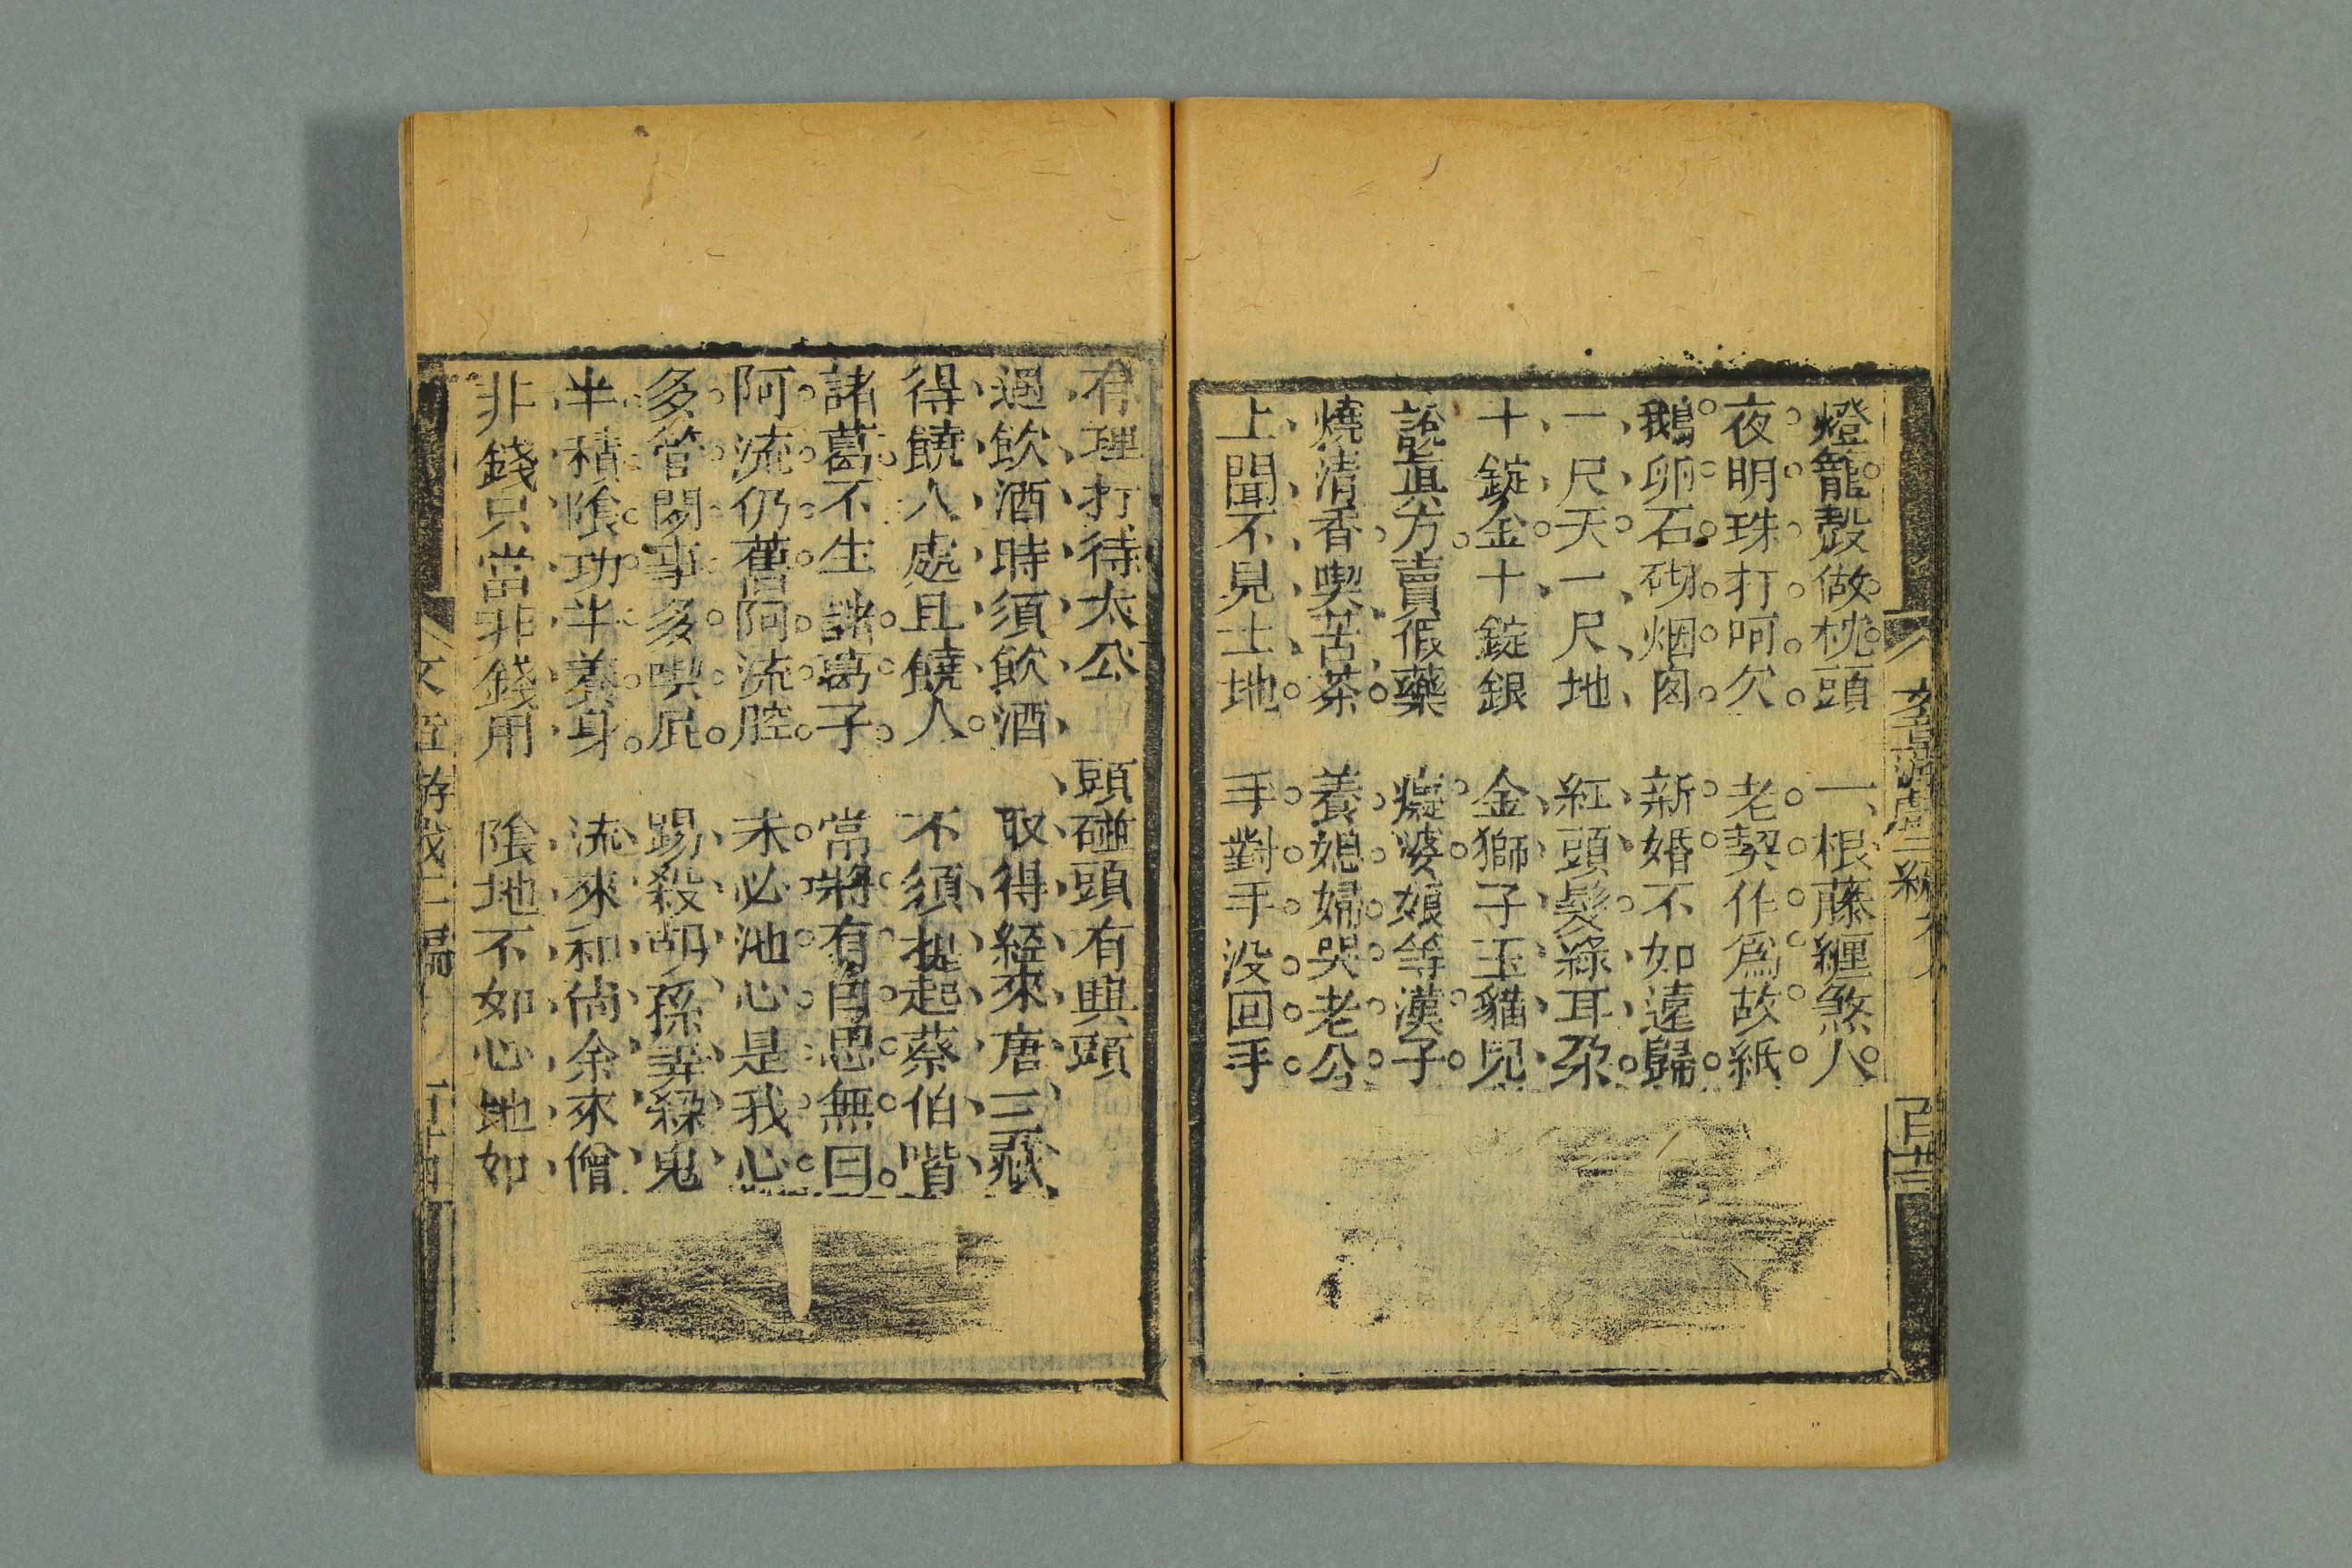 燈籠殼做枕頭　一根藤纏煞人
夜明珠打呵欠　老契作爲故紙
鵝卵石砌烟囱　新婚不如遠歸
一尺天一尺地　紅頭髮綠耳朶
十錠金十錠銀　金獅子玉貓兒
說眞方賣假藥　癡婆娘等漢子
燒清香喫苦茶　養媳婦哭老公
上聞不見土地　手對手没回手
有理打待太公　頭碰頭有興頭
遇飲酒時須飲酒　取得經來唐三藏
得饒人處且饒人　不須提起蔡伯喈
諸葛不生諸葛子　當將有日思無日
阿流仍舊阿流腔　未必池心是我心
多管閑事多喫屁　踢殺胡孫弄殺鬼
半積陰功半養身　流來和尙余來僧
非錢只當非錢用　陰地不如心地如
游戲三編